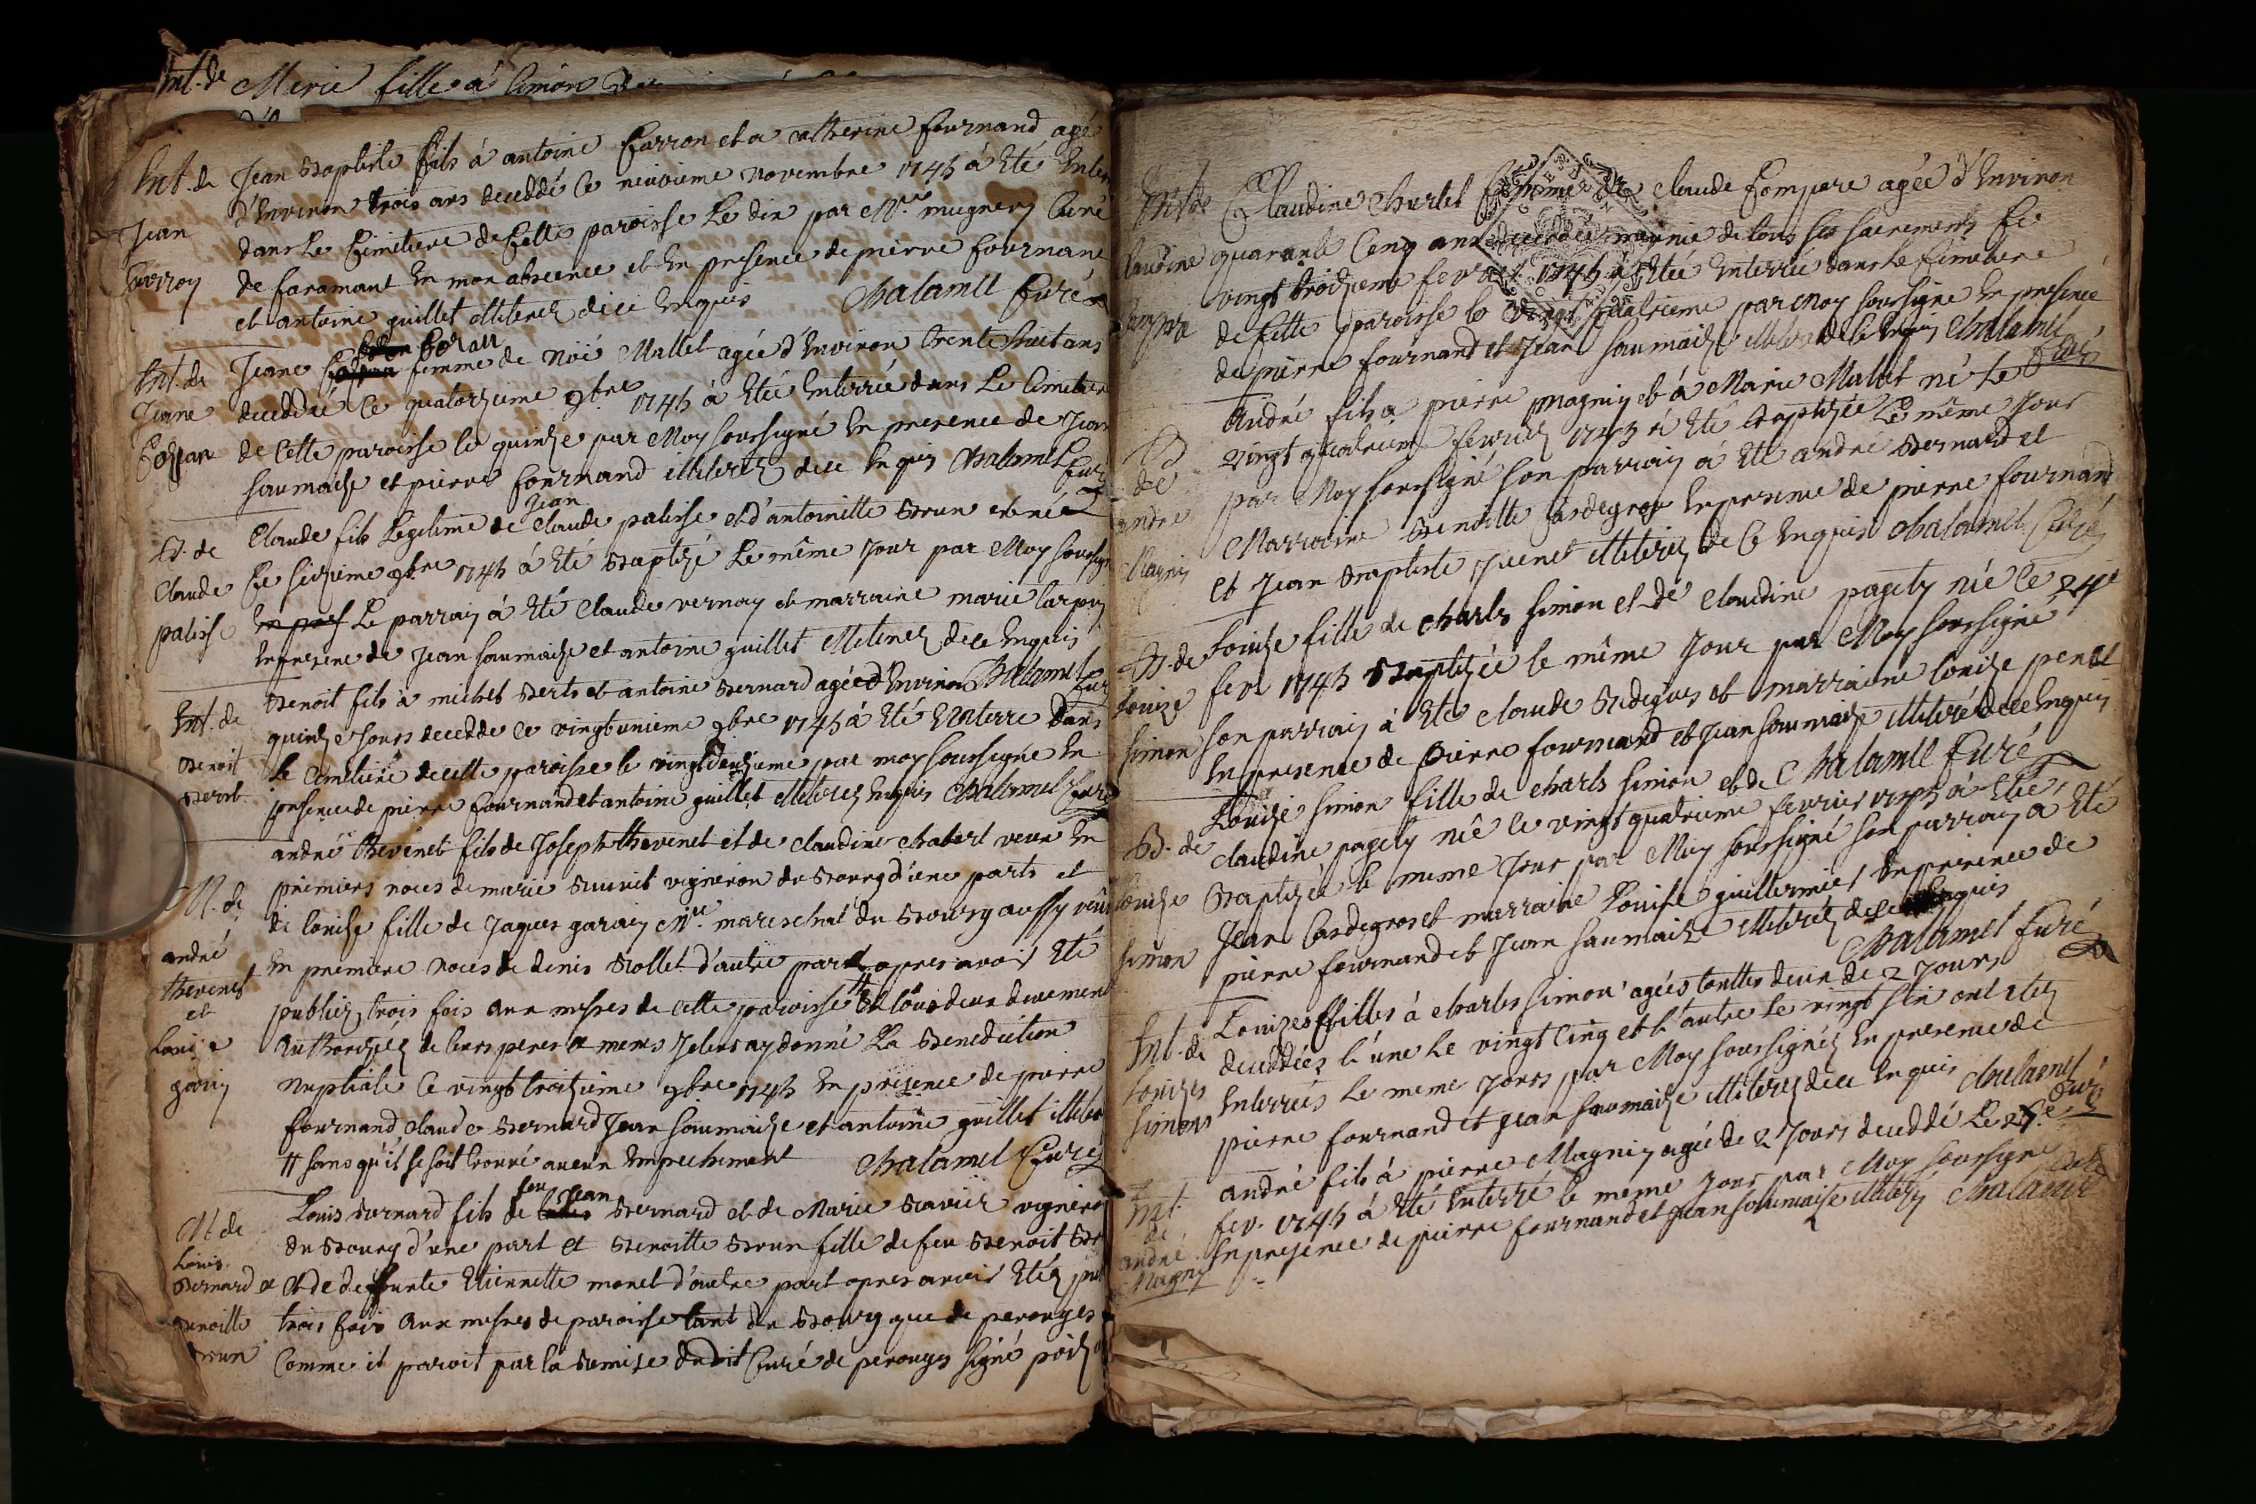 Int. de Marie fille à Simon
Int. de Jean Baptiste fils à antoine farron et a catherine fournand agé
d'Environ trois ans deceddé le neuvieme novembre 1743 à Eté Enter
Jean dans Le Cimetiere de Cette paroisse Le dix par Mre. mugnery Curé
farron de faramant En mon absence et En presence de pierre fournand
et antoine guillet illiterez de ce Enquis Chalamel Curé
Int. de Jeane femme de Noë Mallet agée d'Environ trente huit ans
Jeane deceddée Ce quatorzieme 9bre 1743 à Eté Enterrée dans Le Cimetiere
de Cette paroisse le quinze par Moy soussigné En presence de Jean
saumaize et pierre fournand illiterez de ce Enquis Chalamel Curé
B. de Claude fils Legitime de Jean Claude palisse et d'antoinette Brun est né
Claude Ce seizieme 9bre 1743 à Eté Baptizé Le même Jour par Moy soussigné
palisse En pres Le parrain à Eté Claude vernay et marraine marie
En presence de Jean saumaize et antoine guillet illiterez de ce Enquis
Int. de Benoit fils à michel Berts et antoine Bernard agée d'Environ Chalamel Cur
quinze Jours decedde Ce vingt unieme 9bre 1743 à Eté Enterre dans
Benoit Le Cimetiere de cette paroisse le vingt deuxieme par moy soussigné En
Bert presence de pierre fournand et antoine guillet illiterez Enquis Chalamel Curé
M. de andré thevenet fils de Joseph thevenet et de claudine chabert veuf En
premiers noces de marie vigneron du Bourg d'une parts et
de Louise fille de Jaques garain Me. mareschal du Bourg aussy veuve
andré En premiere noces de denis Rollet d'autre part apres avoir Eté
thevenet publiez trois fois aux messes de cette paroisse et tous deux deuement
et
Louise Authorizéz de leurs peres et meres Je leurs ay donné La Benediction
garain Nuptiale Ce vingt troizieme 9bre 1743 En presence de pierre
fournand claude Bernard Jean saumaize et antoine guillet
# sans qu'il se soit trouvé aucun Empechement Chalamel Curé
M. de Louis Bernard fils de feu Jean Bernard et de Marie vigneron
Louis du Bourg d'une part et Benoitte Brun fille de feu Benoit
Bernard & et de deffunte Etiennette monet d'autre part apres avoir Etéz
Benoitte trois fois aux messes de paroisse tant du Bourg que de perouges
Brun Comme il paroit par la Remise dudit Curé de perouges signé
Int. de Claudine Charlet femme de claude Compare agée d'Environ
Claudine quarante Cinq ans decedée munie de tous ses sacrements Ce
vingt troizieme fevrier 1743 à Etée Enterrée dans Le Cimetiere
de Cette paroisse le vingt quatrieme par Moy soussigné En presence
de pierre fournand et Jean saumaize illiterez de ce Enquis Chalamel Curé
B de andré fils a pierre magnin et à Marie Mallet né Le
vingt quatrieme fevrier 1743 à Eté Baptizée Le même Jour
andré par Moy soussigné son parrain à Eté andré Bernard et
Magnin Marraine Benoitte Casdegros En presence de pierre fournand
et Jean Baptiste illiterez de Ce Enquis Chalamel Curé
B. de Louize fille de charls simon et de claudine pagety née Ce 24e
Louize fevr. 1743 Baptizée le même Jour par Moy soussigné
simon son parrain à Eté claude et marraine louize
En presence de pierre fournand et Jean saumaize illiteré de ce Enquis
Chalamel Curé
B. de Louize simon fille de charls simon et de
claudine pagety née Ce vingt quatrieme fevrier 1743 à Eté
Louize Baptizée le meme Jour par Moy soussigné son parrain à Eté
Jean Casdegros et marraine Louise guillermin En presence de
simon pierre fournand et Jean saumaize illiteréz de ce Enquis
Chalamel Curé
Int. de Louizes filles à charles simon agées touttes deux de 2 Jours
deceddées l'une Le vingt Cinq et l'autre Le vingt six ont Etéz
Louizes Enterrées Le meme Jours par Moy soussignéz En presence de
simons pierre fournand et Jean saumaize illiterez de ce Enquis Chalamel Curé
Int. de andré fils à pierre Magnin agée de 2 Jours deceddé Le
fev. 1743 à Eté Enterré le même Jour par Moy soussigné
andré En presence de pierre fournand et Jean saumaize illiterez Chalamel Curé
Magnin